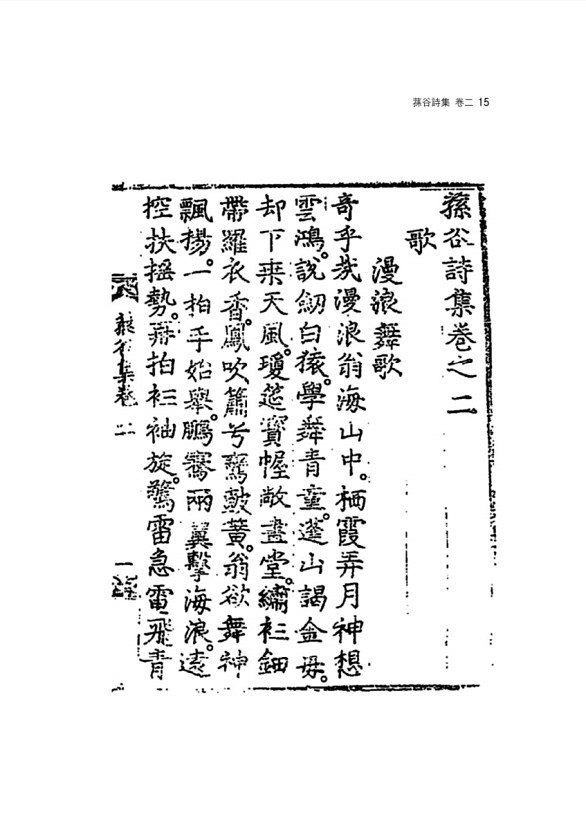 蓀谷詩集 卷二 15
蓀谷詩集卷之二
歌
漫浪舞歌
奇乎哉漫浪翁海山中。栖霞弄月神想
雲鴻。說釼白猿。學舞青童。蓬山謁金母。
却下来天風。瓊筵寳幄敞畫堂。繡衫鈿
帶羅衣香。鳳吹簫兮鸞皷簧。翁欲舞神
飄揚。一拍手始舉。鵬騫兩翼擊海浪。遠
控扶搖勢。再拍衫袖旋。驚雷急電飛青
蓀谷集卷二
一